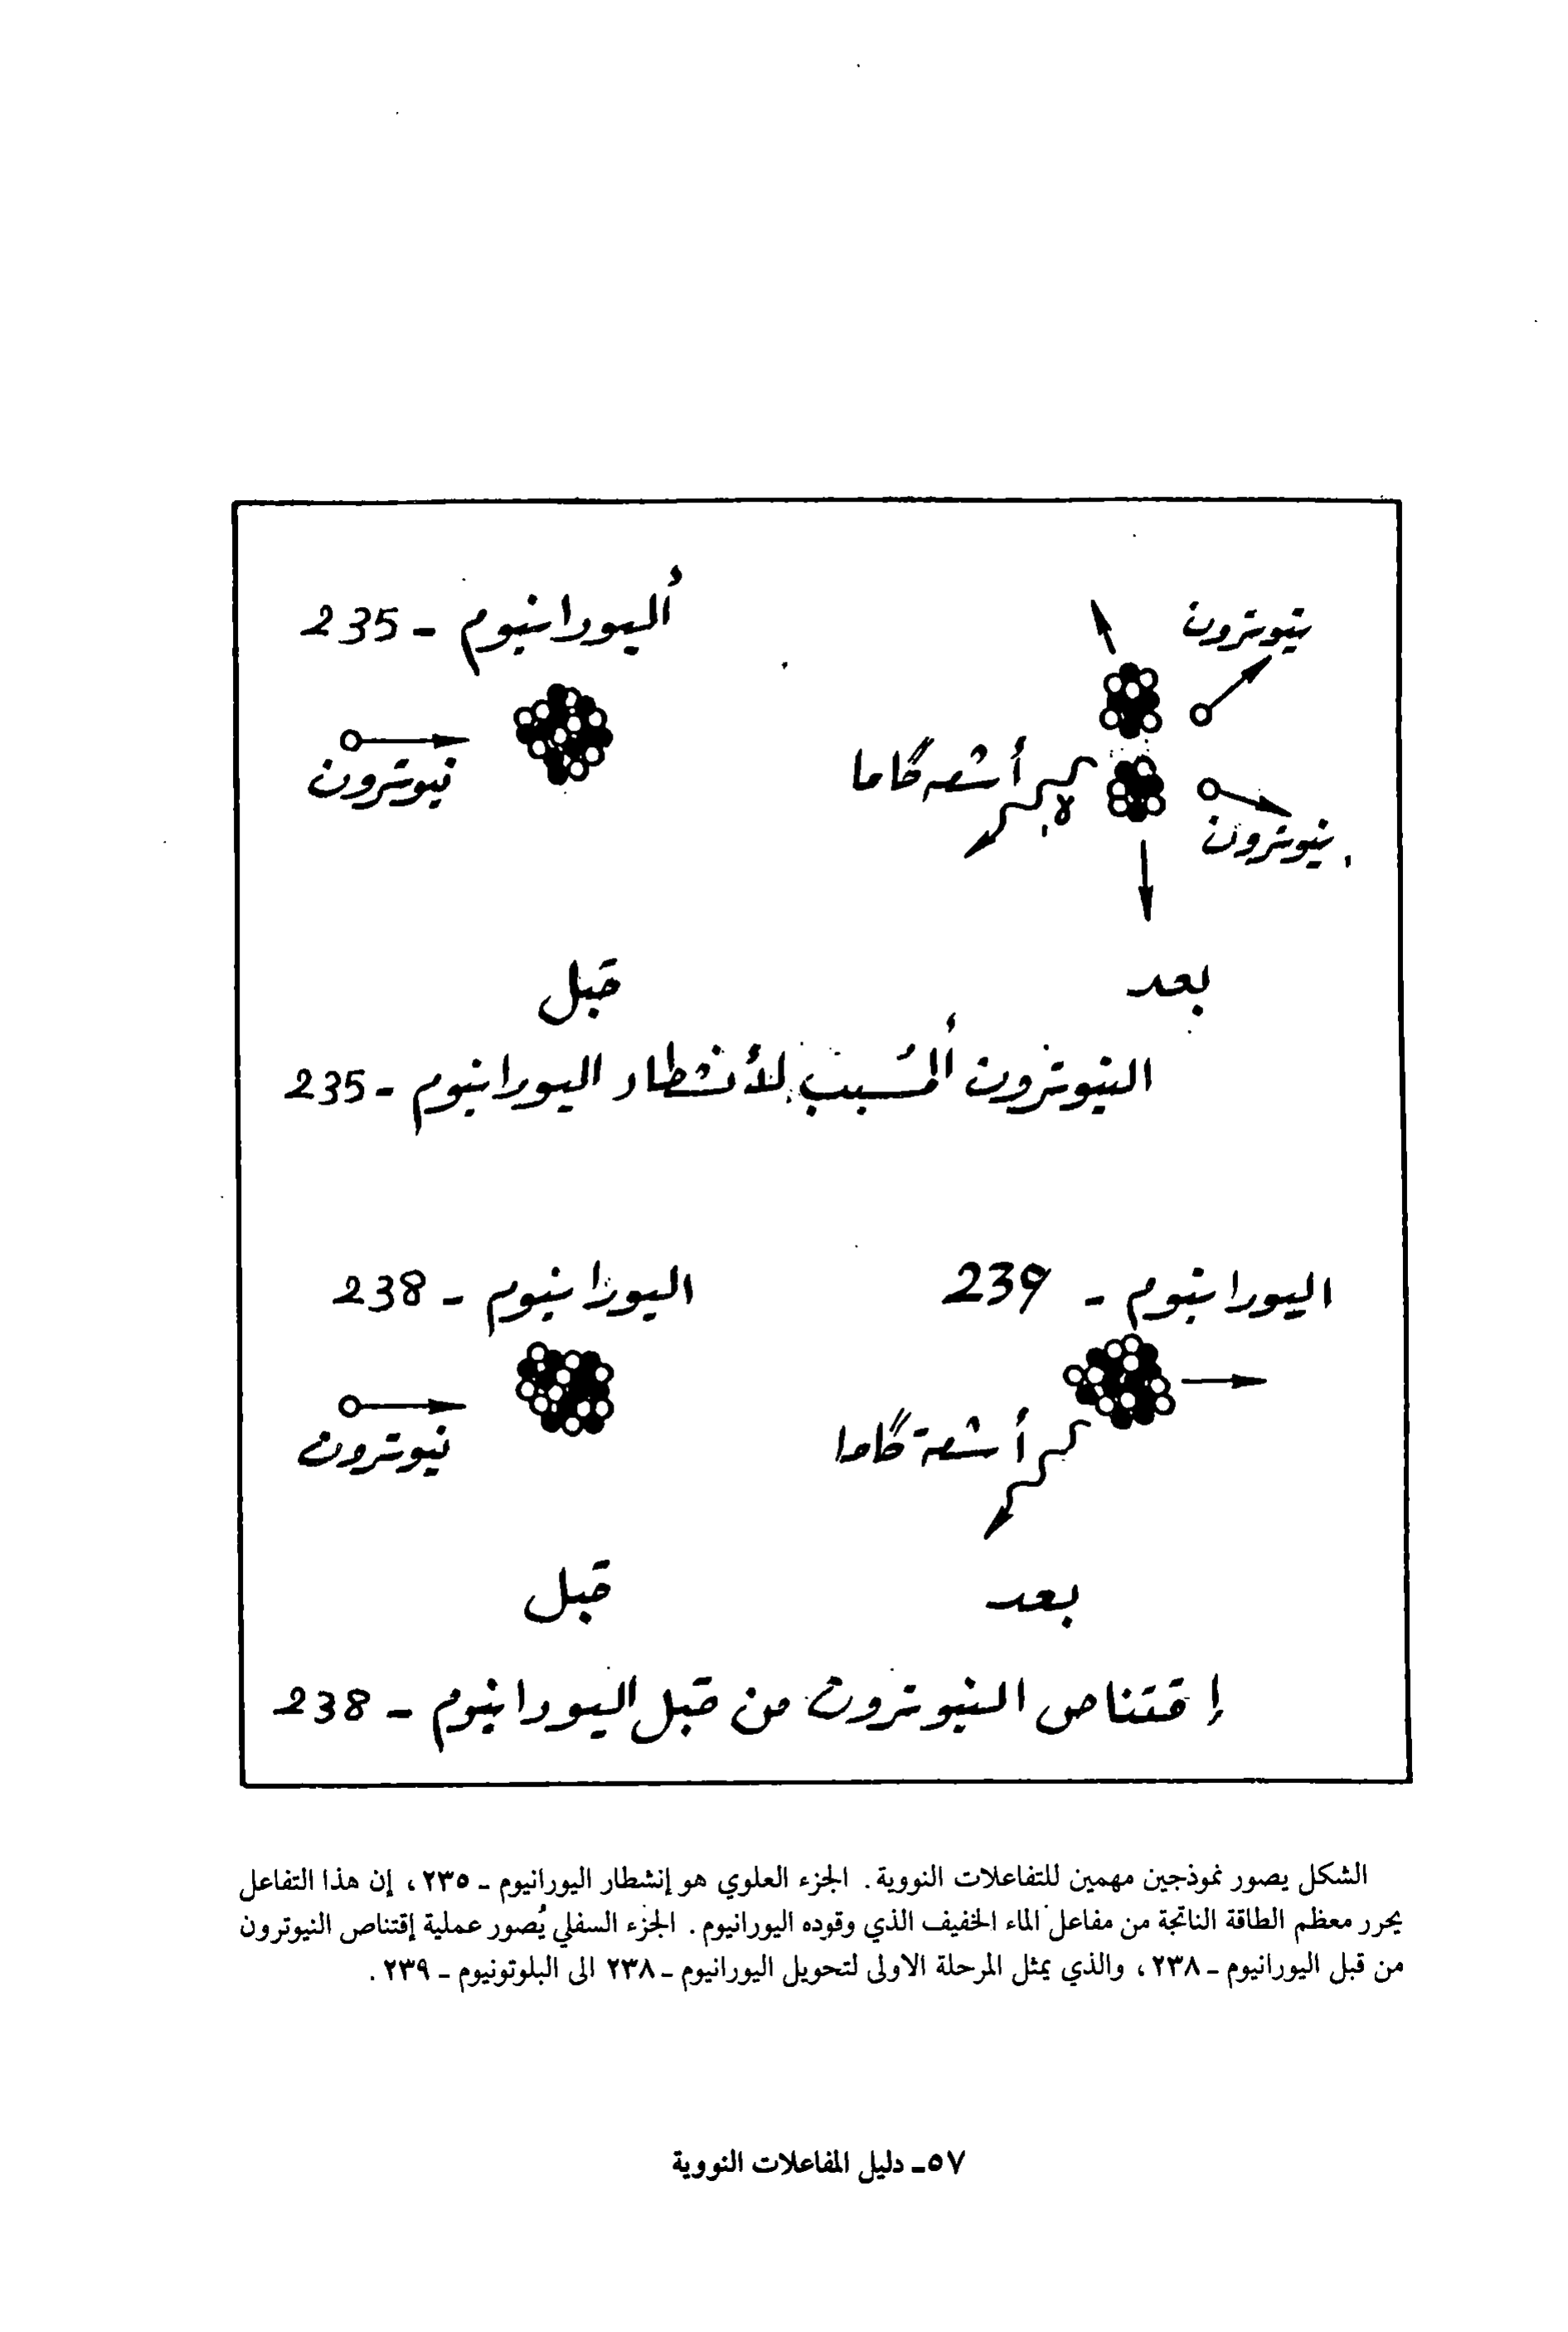 نيوترون
ألميورانيوم - 235
نيوترون
أشعه گاما
نيوترون
بعد
قبل
النيوترون ألمُسبب للأنشطار اليورانيوم - 235
اليورانيوم - 239
اليورانيوم - 238
أشعة گاما
نيوترون
بعد
قبل
إقتناص النيوترون من قبل اليورانيوم - 238
الشكل يصور نموذجين مهمين للتفاعلات النووية. الجزء العلوي هو إنشطار اليورانيوم - ٢٣٥، إن هذا التفاعل
يحرر معظم الطاقة الناتجة من مفاعل الماء الخفيف الذي وقوده اليورانيوم. الجزء السفلي يُصور عملية إقتناص النيوترون
من قبل اليورانيوم - ٢٣٨، والذي يمثل المرحلة الاولى لتحويل اليورانيوم - ٢٣٨ الى البلوتونيوم - ٢٣٩.
٥٧- دليل المفاعلات النووية